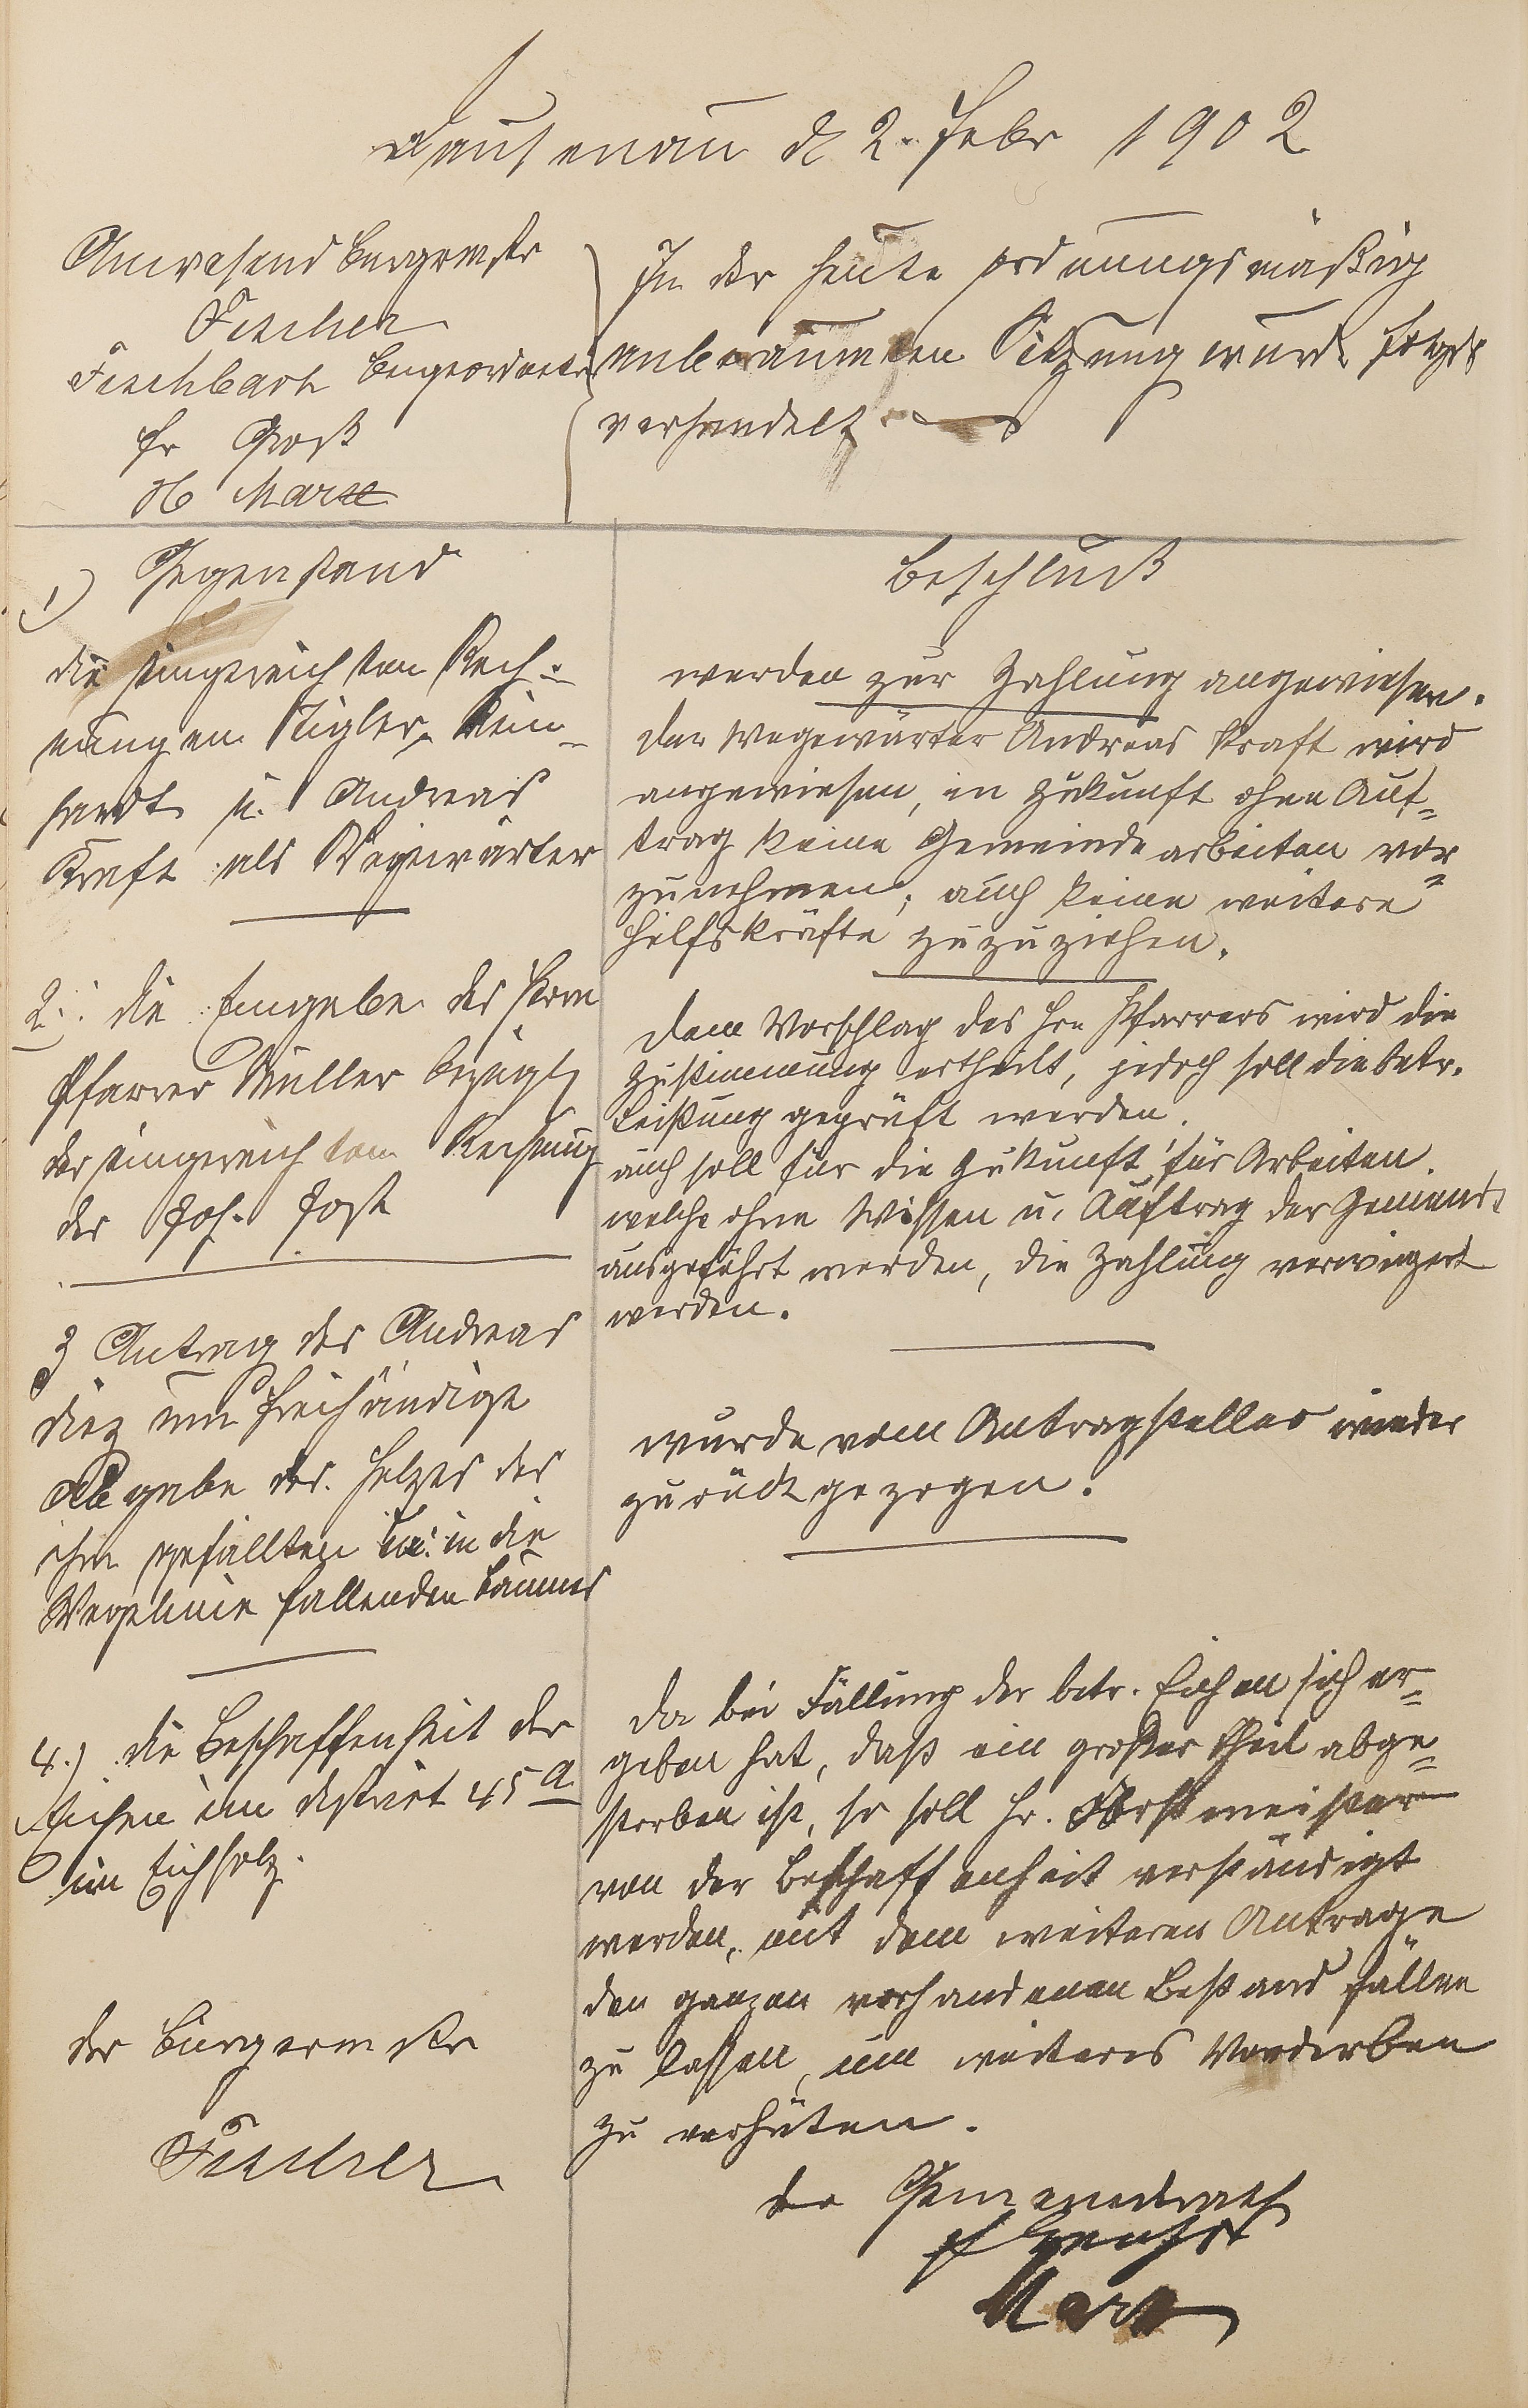 Dausenau d 2. Febr 1902
Anwesend Bürgermstr
Fischer
Fischbach Beigeordneter
Fr Groß
H Marx
In der heute ordnungsmäßig
anberaumten Sitzung wurde folgds
verhandelt
Gegenstand
Beschluß
1)
die eingereichten Rech-
nungen Rein-
hardt u. Andreas
Kraft als Wegewärter
werden zur Zahlung angewiesen.
Der Wegewärter Andreas Kraft wird
angewiesen, in Zukunft ohne Auf-
trag keine Gemeindearbeiten vor-
zunehmen; auch keine weitere
Hilfskräfte zuzuziehen.
2. die Eingabe des Herrn
Pfarrer Müller bezügl
der eingereichten Rechnung
des Joh. Jost
Dem Vorschlag des Hrn Pfarrers wird die
Zustimmung ertheilt, jedoch soll die betr.
Leistung geprüft werden.
auch soll für die Zukunft, für Arbeiten
welche ohne Wissen u. Auftrag der Gemeinde
ausgeführt werden, die Zahlung verweigert
werden.
3 Antrag des Andreas
Diez um freihändige
Abgabe des Holzes der
ihm gefällten in die
Wegelinie fallenden Bäume
wurde vom Antragsteller wieder
zurückgezogen.
4.) die Beschaffenheit der
Eichen im District 45 a
im Eichholz.
Da bei Fällung der betr. Eichen sich er-
geben hat, daß ein großer Theil abge-
storben ist, so soll Hr. Forstmeister
von der Beschaffenheit verständigt
werden, mit dem weiteren Antrage
den ganzen vorhandenen Bestand fällen
zu lassen, um weiteres Verderben
zu verhüten.
der Bürgermstr
Fischer
der Gemeinderath
Marx